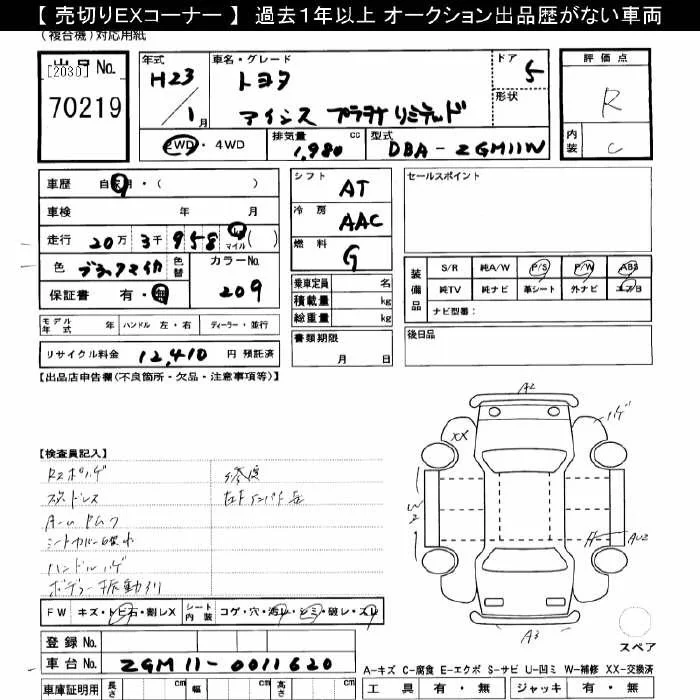 【 売切りEXコーナー 】 過去1年以上 オークション出品歴がない車両
(複合機)対応用紙
出品 No.
[2030]
70219
年式
H23
/1月
車名・グレード
トヨタ
アイシス プラタナ リミテッド
ドア
5
形状
評価点
R
内装
C
2WD ・ 4WD
排気量
1,980 cc
型式
DBA - ZGM11W
車歴 自家用・( )
車検 年 月
走行 20万 3千 958 km マイル ( )
色 ブラックマイカ 色替
カラーNo. 209
保証書 有・無
シフト AT
冷房 AAC
燃料 G
乗車定員 名
積載量 kg
総重量 kg
セールスポイント
装備品
S/R 純A/W P/S P/W ABS
純TV 純ナビ 革シート 外ナビ エアB
ナビ型番:
モデル年式 年 ハンドル 左・右 ディーラー・並行
リサイクル料金 12,410 円 預託済
書類期限
月 日
後日品
【出品店申告欄(不良箇所・欠品・注意事項等)】
【検査員記入】
ハンドルハゲ
FW キズ・トビ石・割レX シート内装 コゲ・穴・汚レ・シミ・破レ・スレ
登録 No.
車台 No. ZGM11-0011620
車庫証明用 長さ cm 幅 cm 高さ cm
A2
ハゲ
XX
W2
A
AU2
A3
スペア
A-キズ C-腐食 E-エクボ S-サビ U-凹ミ W-補修 XX-交換済
工具 有・無 ジャッキ 有・無